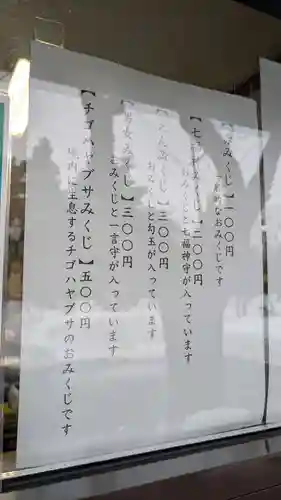 みくじ】一〇〇円
なおみくじです
【七みくじ】二〇〇円
おみくじと七福神守が入っています
みくじ】三〇〇円
おみくじと勾玉が入っています
【男女みくじ】三〇〇円
おみくじと一言守が入っています
【チゴハヤブサみくじ】五〇〇円
境内に生息するチゴハヤブサのおみくじです